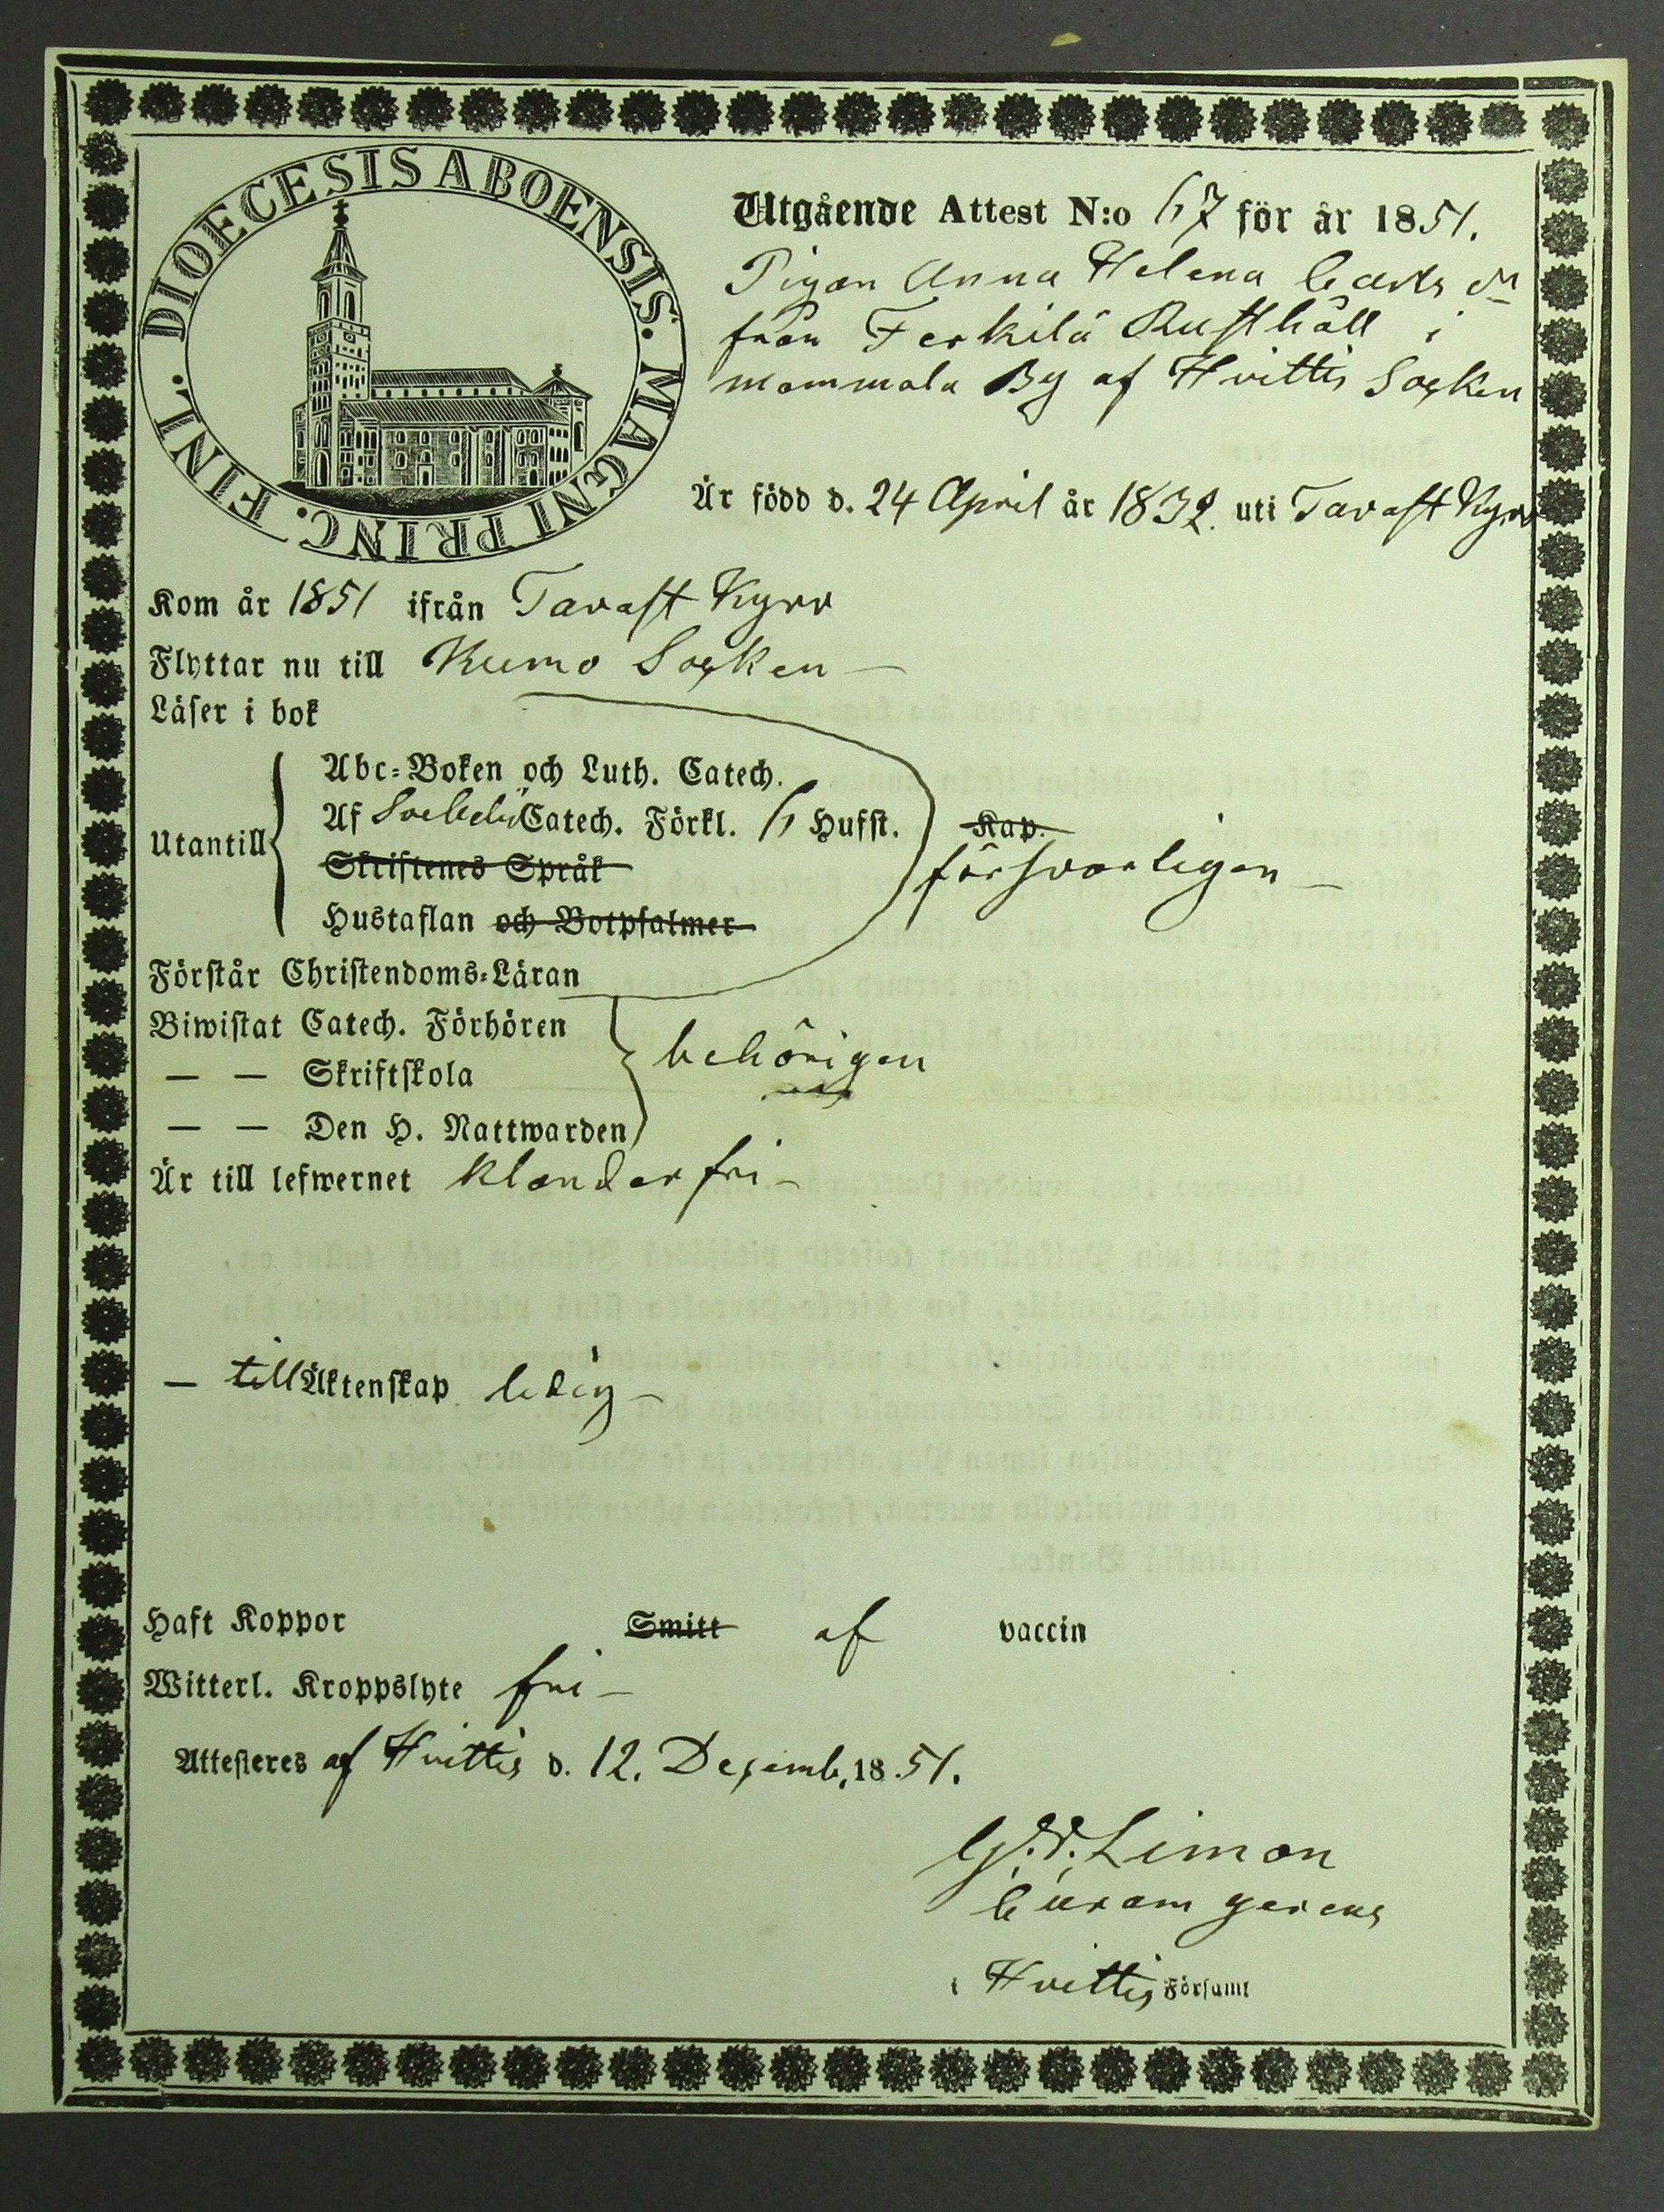 DIOECESIS ABOENSIS. MAGNI PRINC. FINL.
Utgående Attest N:o 67 för år 1851.
Pigan Anna Helena Carls dr
från Ferkilä Rusthåll i
Mommola By af Hvittis Socken
Är född d. 24 April år 1832. uti Tavast Kyro
Kom år 1851 ifrån Tavast Kyro
Flyttar nu till Kumo Socken –
Läser i bok
Utantill
Abc-Boken och Luth. Catech.
Af Svebelii Catech. Förkl. 6 Hufst. Kap.
Skriftenes Språk försvarligen –
Hustaflan och Botpsalmer
Förstår Christendoms-Läran
Biwistat Catech. Förhören
— — Skriftskola behörigen
— — Den H. Nattwarden
Är till lefwernet klanderfri –
— till Äktenskap ledig –
Haft Koppor Smitt af vaccin
Witterl. Kroppslyte fri –
Attesteres af Hvittis d. 12. Decemb. 1851.
Limon
Curam gerens
i Hvittis Församl